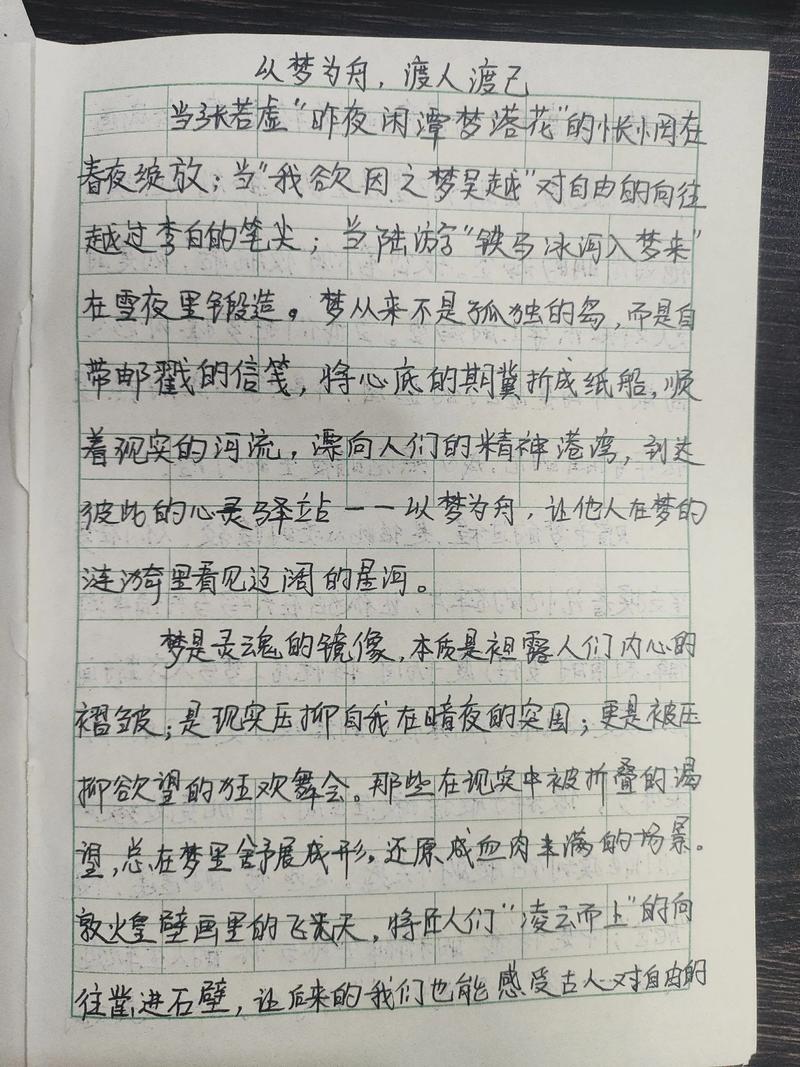 以梦为舟，渡人渡己
当张若虚“昨夜闲潭梦落花”的怅惘在
春夜绽放；当“我欲因之梦吴越”对自由的向往
越过李白的笔尖；当陆游字“铁马冰河入梦来”
在雪夜里锻造。梦从来不是孤独的岛，而是自
带邮戳的信笺，将心底的期冀折成纸船，顺
着现实的河流，漂向人们的精神港湾，到达
彼此的心灵驿站——以梦为舟，让他人在梦的
涟漪里看见辽阔的星河。
梦是灵魂的镜像，本质是袒露人们内心的
褶皱；是现实压抑自我在暗夜的突围；更是被压
抑欲望的狂欢舞会。那些在现实中被折叠的渴
望，总在梦里舒展成形，还原成血肉丰满的场景。
敦煌壁画里的飞天，将匠人们“凌云而上”的向
往凿进石壁，让后来的我们也能感受古人对自由的